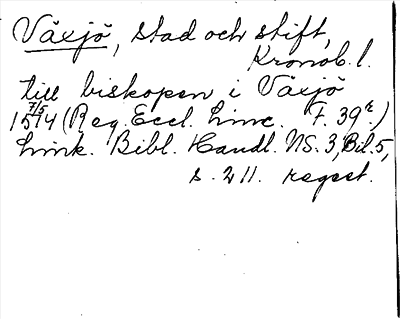 Växjö, stad och stift,
Kronob. l.
till biskopen i Växjö
7/5
1514 (Reg. Eccl. Linc. F. 39r.)
Link. Bibl. Handl. NS. 3, Bil. 5,
s. 211. regest.